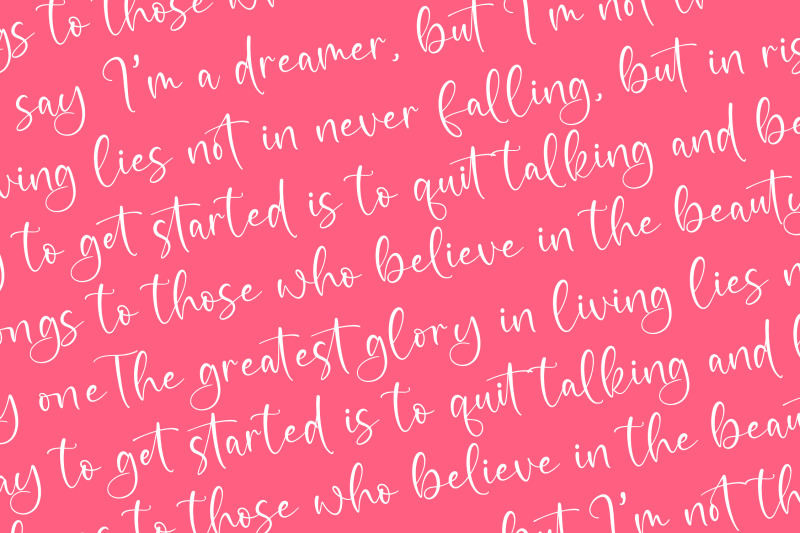 ngs to those w
say I'm a dreamer, but I'm not th
ving lies not in never falling, but in ris
y to get started is to quit talking and be
ongs to those who believe in the beauty
y one The greatest glory in living lies n
ay to get started is to quit talking and b
ngs to those who believe in the beau
but I'm not th